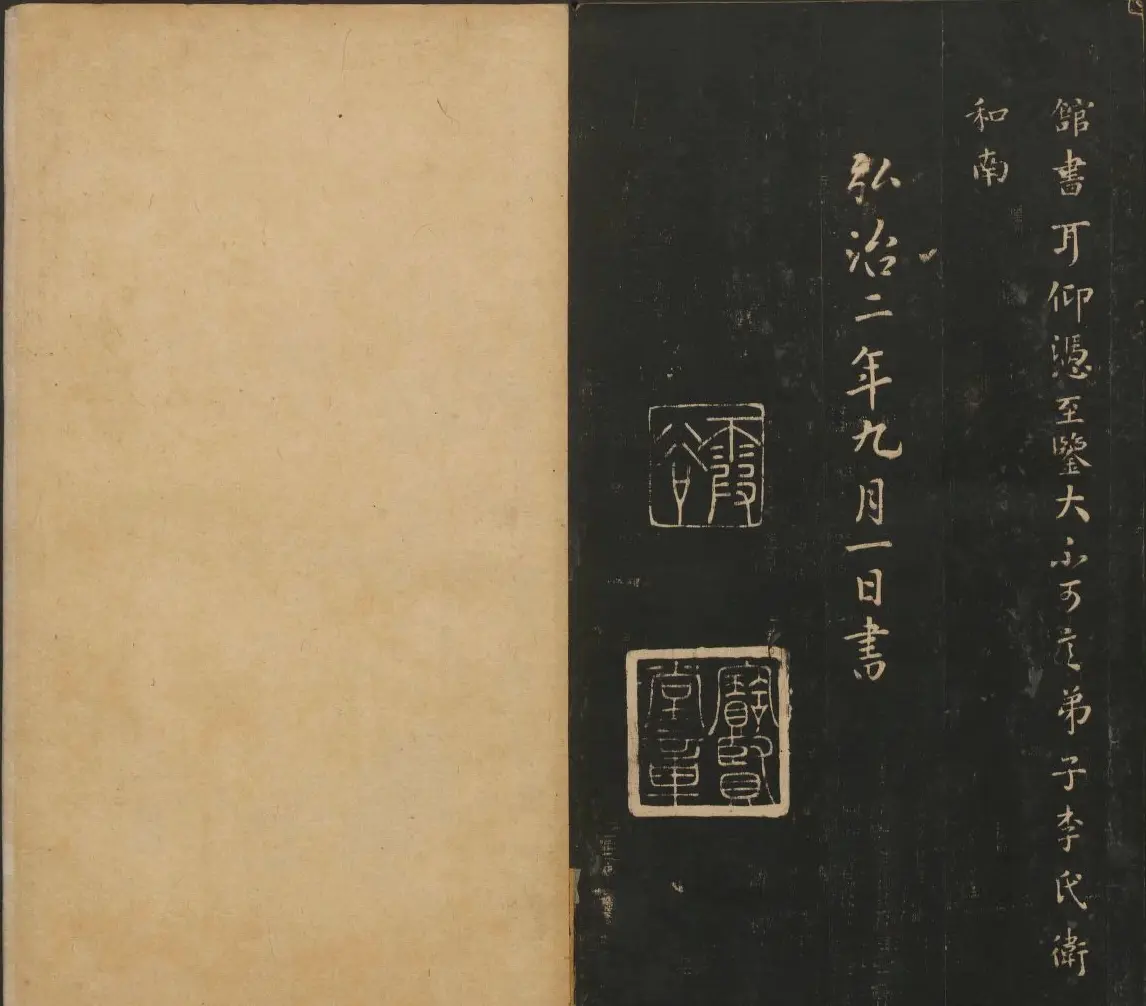 館書耳仰憑至鑒大不可言弟子李氏衛
和南
弘治二年九月一日書
霞谷
寶賢堂章